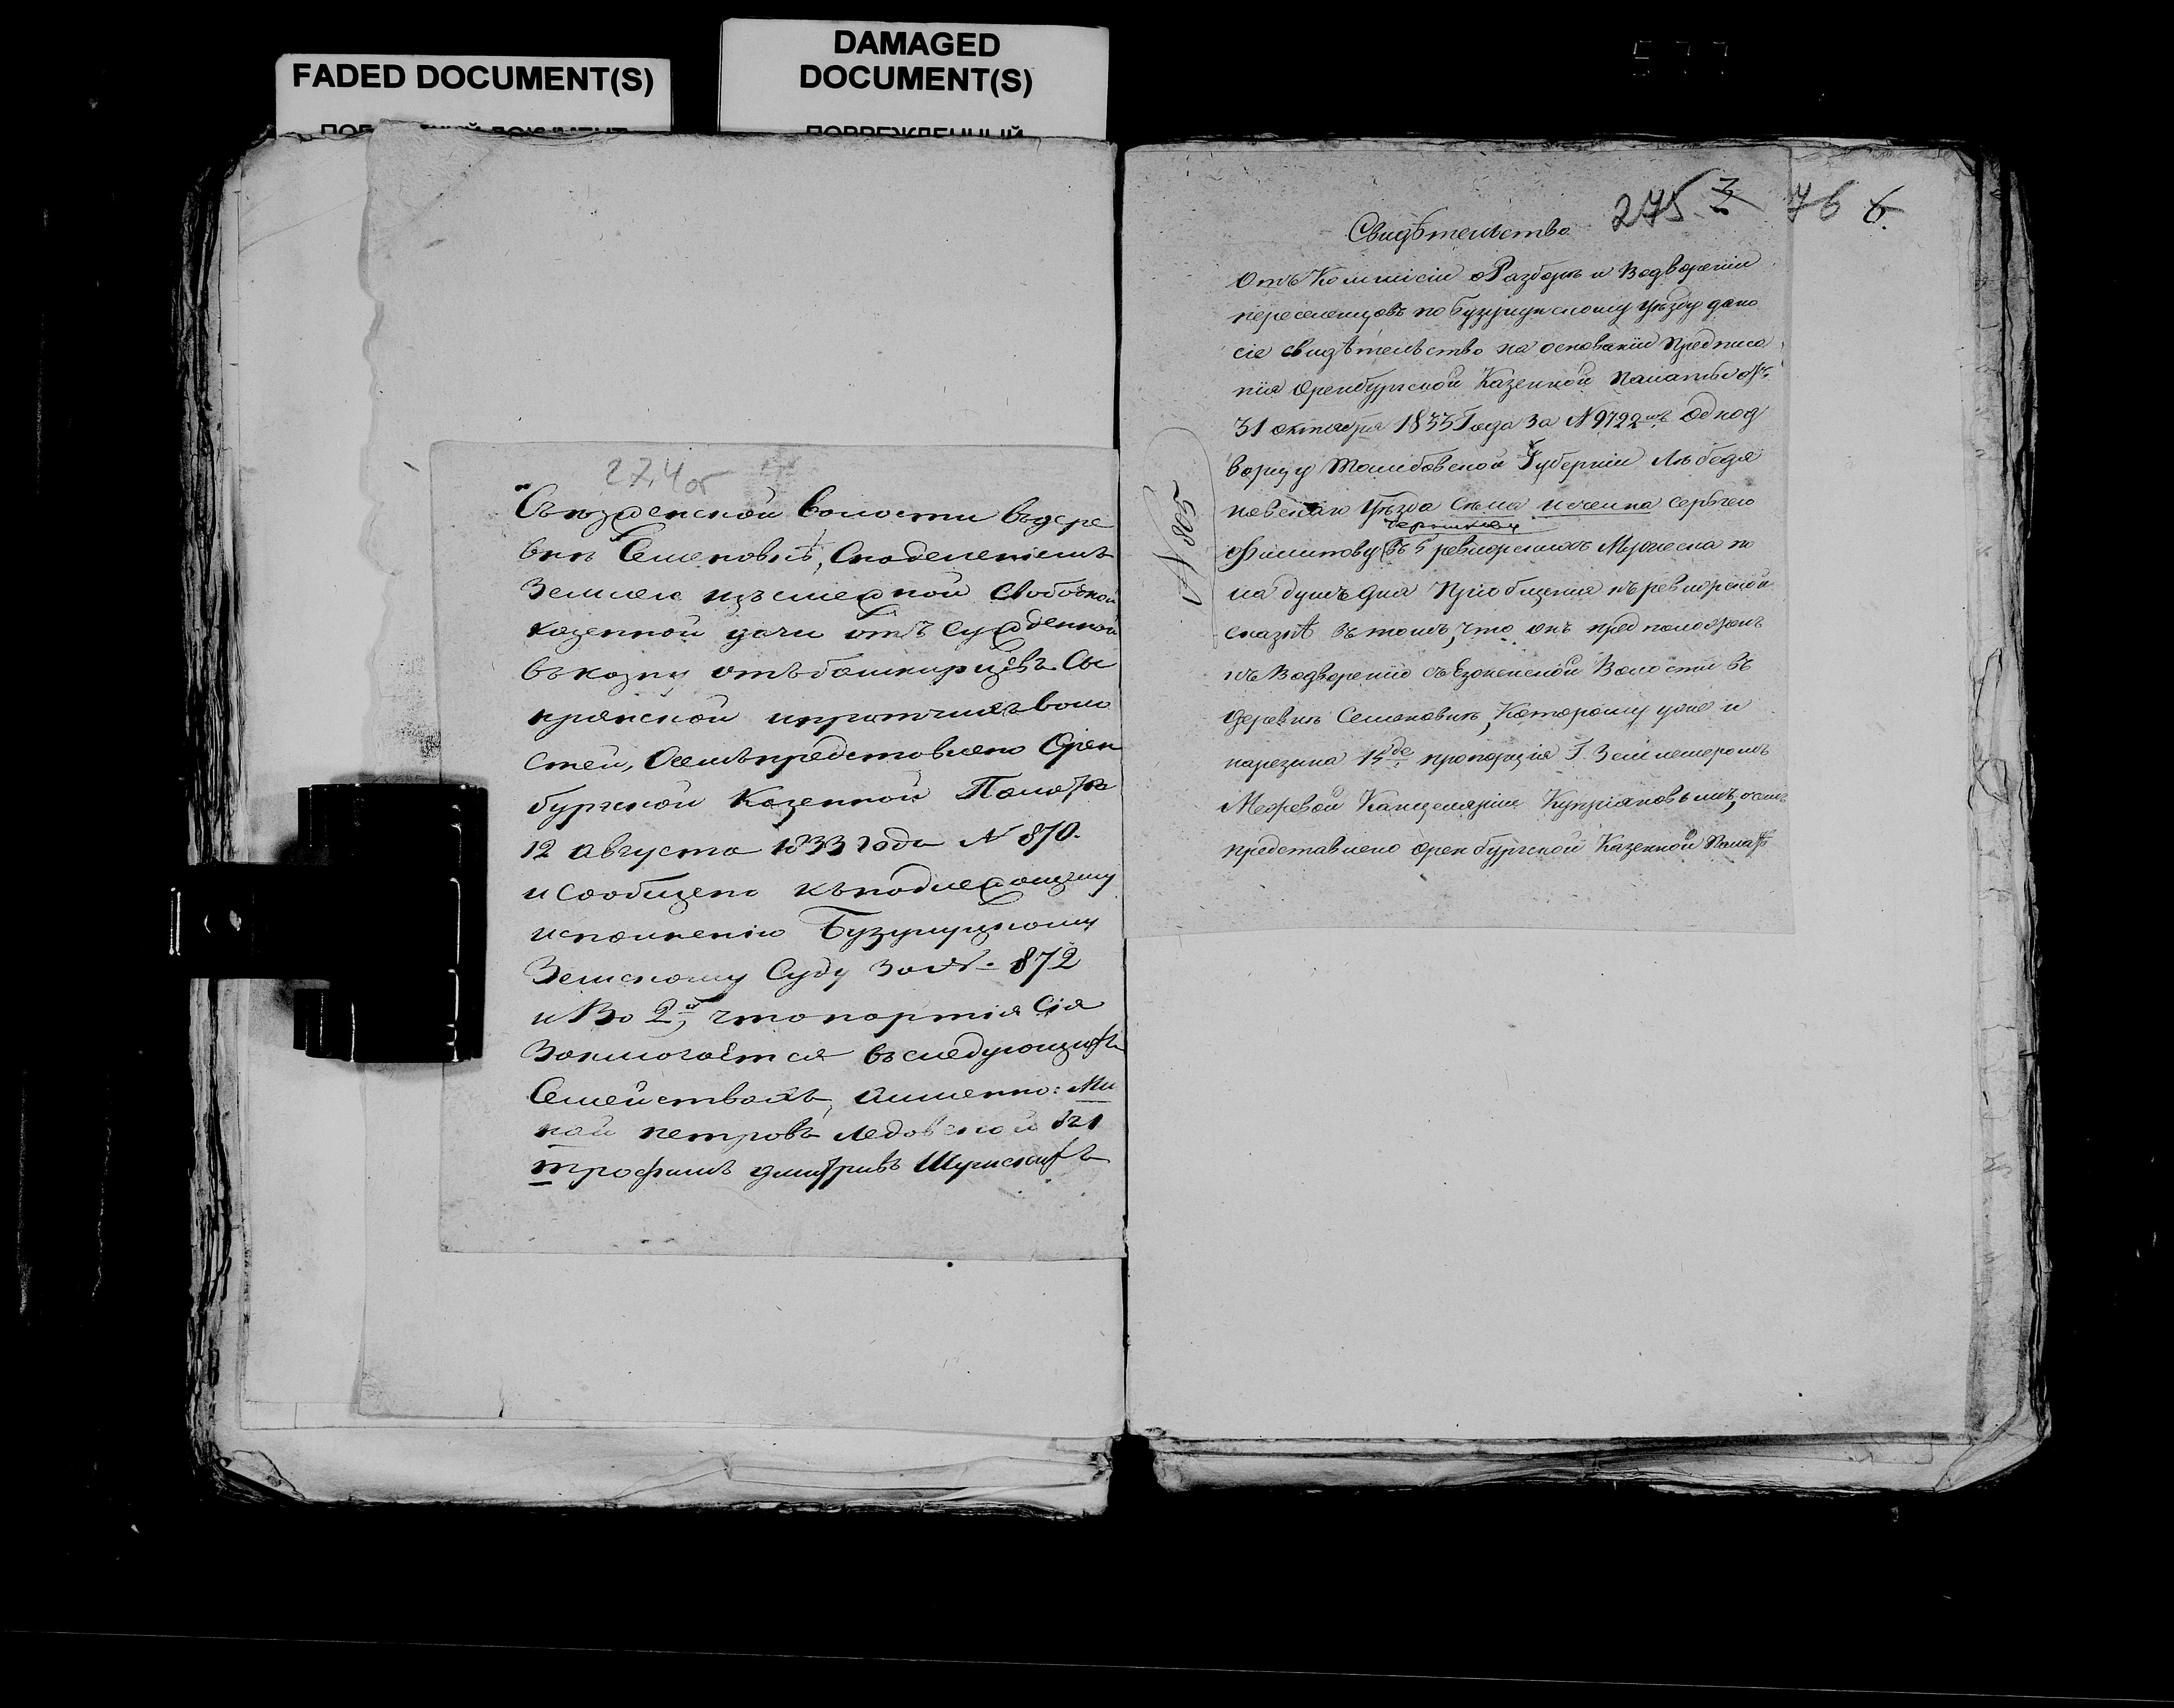 FADED DOCUMENT(S)
DAMAGED
DOCUMENT(S)
ПОВРЕЖДЕННЫЙ
577
274об
Съезженской волости въ дере
внѣ Семеновкѣ, Снаделеніемъ
Землею изъ смежной свободной
казенной дачи отъ Сужденной
въ казну отъ башкирцевъ. Сы
нрянской и протчихъ воло
стей, Очемъ представлено Орен
бургской Казенной Палатѣ
12 августа 1833 года № 870.
и сообщено къ подлежащему
исполненію Бузулуцкому
Земскому Суду За № 872
и Во 2й, что партія Сія
Заключается въ следующихъ
Семействахъ, Аименно: Ми
най петровъ ледовской
трофимъ дмитривъ Шумскихъ
275 3 76 6.
Свидѣтельство
Отъ Комисіи о Разборѣ и Водвореніи
переселенцовъ по бузулукскому уѣзду дано
сіе свидѣтельство на основаніи предписа
нія Оренбургской Казенной Палаты отъ
31 октября 1833 Года За № 9722мъ Однод
ворцу Тамбовской Губерніи Лебедя
новскаго Уѣзда Села Сергею
Филипову (Въ 5 ревизскихъ Мужеска по
ла душъ для Пріобщенія къ ревизской
сказкѣ въ томъ, что онъ предположенъ
къ Водворенію съезженской Волости въ
деревнѣ Семеновкѣ, Которому уже и
нарезана 15де пропорція Г. Землемеромъ
Межевой Канцеляріи Купріяновымъ, очемъ
представлено оренбургской Казенной Палатѣ
№ 508